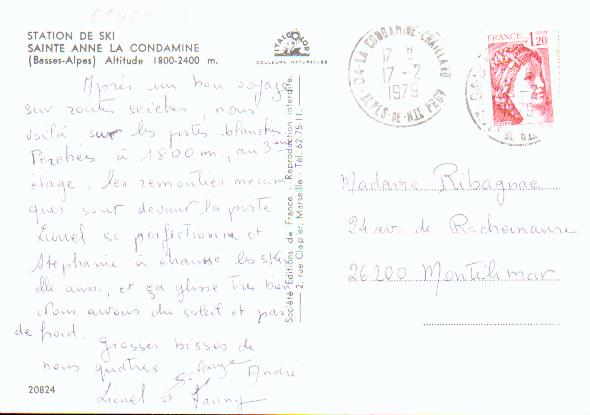 STATION DE SKI
SAINTE ANNE LA CONDAMINE
(Basses-Alpes) Altitude 1800-2400 m.
COULEURS NATURELLES
Après un bon voyage
sur routes sèches, nous
voilà sur les pistes blanches
Perchés à 1800 m, au 3ème
étage. les remontées mecani
ques sont devant la porte
Lionel se perfectionne et
Stephanie à chaussé les skis
elle aussi, et ça glisse très bien
Nous avons du soleil et pas
de froid.
Grosses bisses de
nous quatres
Solange André
Lionel et Fanny
20824
Société Editions de France - Reproduction interdite.
2, rue Clapier, Marseille - Tél. 62 75 11.
04-LA CONDAMINE-CHATELARD
17 H
17-2
1979
ALPES-DE-HTE PROV
FRANCE 1,20
Madame Ribagnac
24 av. de Rochemaure
26200 Montélimar